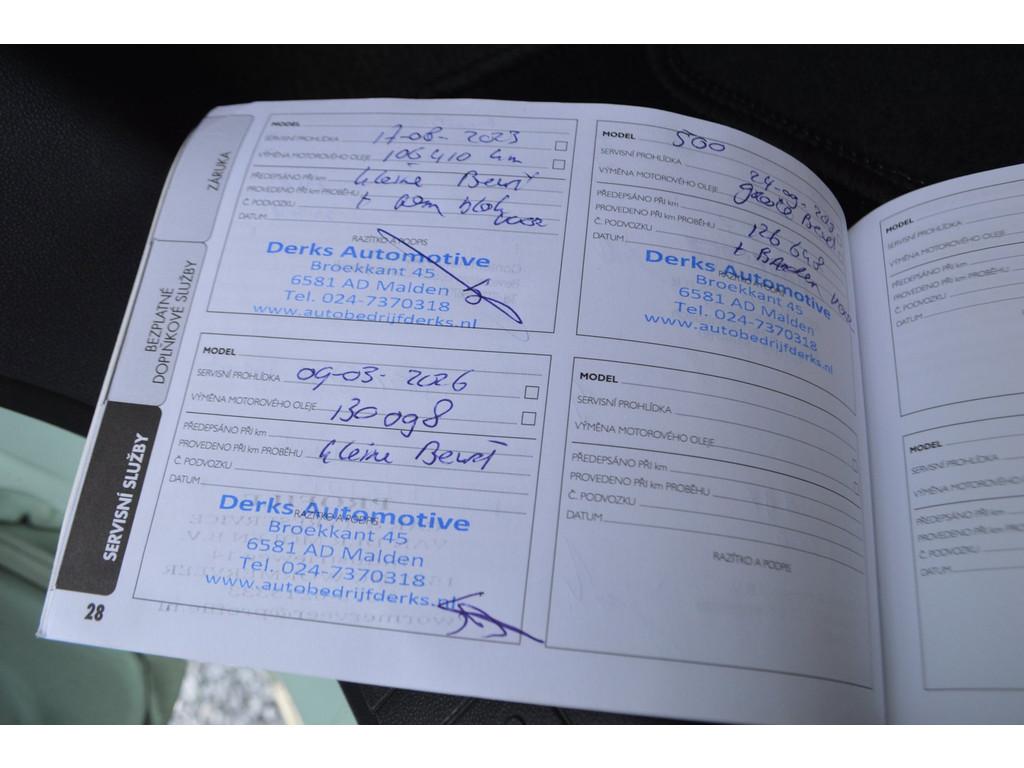 ZÁRUKA
BEZPLATNÉ
DOPLŇKOVÉ SLUŽBY
SERVISNÍ SLUŽBY
28
MODEL
SERVISNÍ PROHLÍDKA 17-08-2023
VÝMĚNA MOTOROVÉHO OLEJE 106410 km
PŘEDEPSÁNO PŘI km Kleine Beurt
PROVEDENO PŘI km PROBĚHU +
Č. PODVOZKU
DATUM
RAZÍTKO A PODPIS
Derks Automotive
Broekkant 45
6581 AD Malden
Tel. 024-7370318
www.autobedrijfderks.nl
MODEL 500
SERVISNÍ PROHLÍDKA
VÝMĚNA MOTOROVÉHO OLEJE
PŘEDEPSÁNO PŘI km grote Beurt
PROVEDENO PŘI km PROBĚHU 126648
Č. PODVOZKU
DATUM
Derks Automotive
Broekkant 45
6581 AD Malden
Tel. 024-7370318
www.autobedrijfderks.nl
MODEL
SERVISNÍ PROHLÍDKA 09-03-2026
VÝMĚNA MOTOROVÉHO OLEJE 130098
PŘEDEPSÁNO PŘI km
PROVEDENO PŘI km PROBĚHU Kleine Beurt
Č. PODVOZKU
DATUM
RAZÍTKO A PODPIS
Derks Automotive
Broekkant 45
6581 AD Malden
Tel. 024-7370318
www.autobedrijfderks.nl
MODEL
SERVISNÍ PROHLÍDKA
VÝMĚNA MOTOROVÉHO OLEJE
PŘEDEPSÁNO PŘI km
PROVEDENO PŘI km PROBĚHU
Č. PODVOZKU
DATUM
RAZÍTKO A PODPIS
MODEL
SERVISNÍ PROHLÍDKA
VÝMĚNA MOTOROVÉHO
PŘEDEPSÁNO PŘI km
PROVEDENO PŘI km PROBĚHU
Č. PODVOZKU
DATUM
MODEL
SERVISNÍ PROHLÍDKA
VÝMĚNA MOTOROVÉHO OLEJE
PŘEDEPSÁNO PŘI km
PROVEDENO PŘI km PROBĚHU
Č. PODVOZKU
DATUM